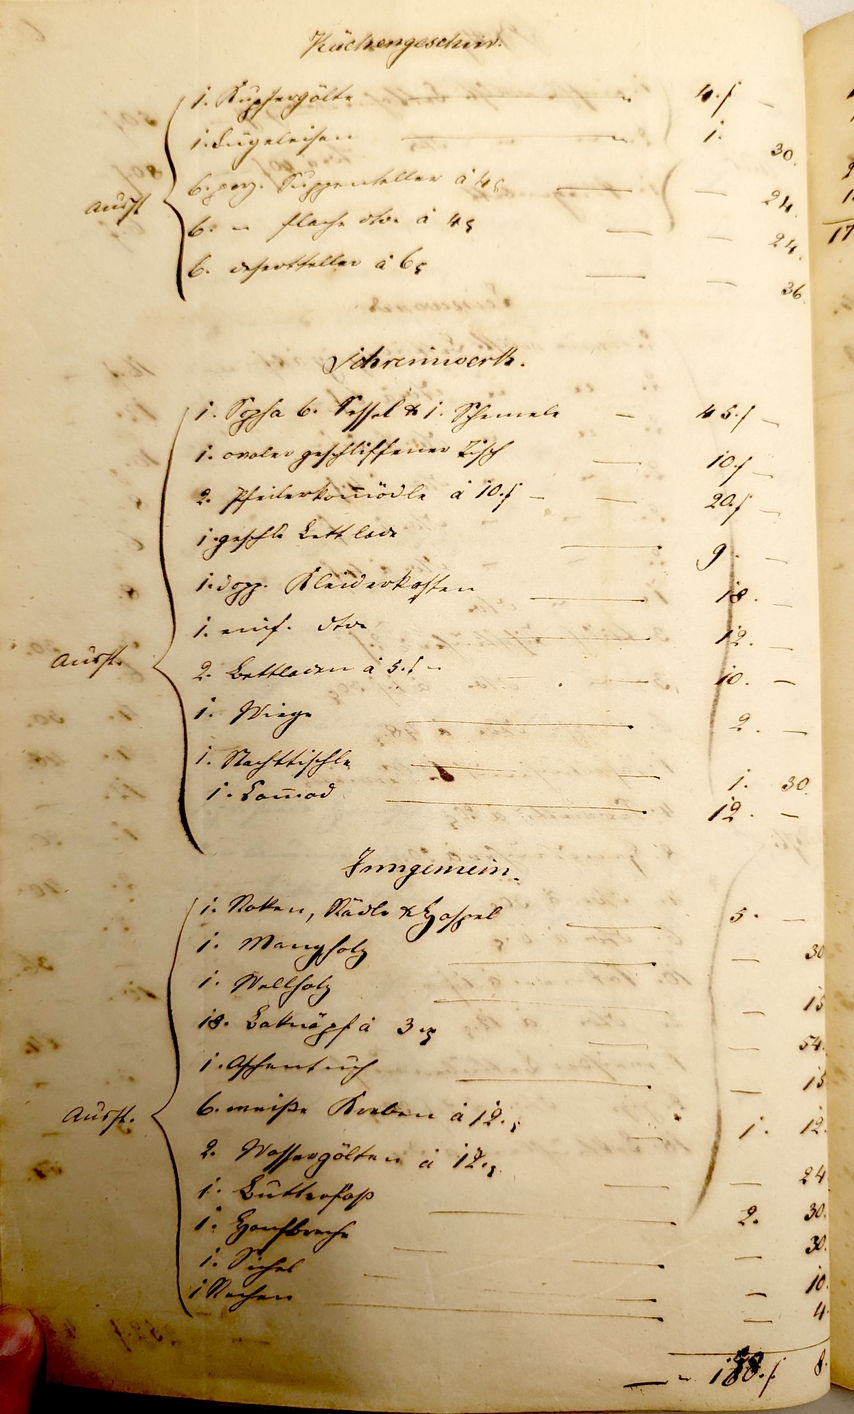 Küchengeschirr.
1. Kupfergölte — 4.f —
1. Bügeleisen — 1. 30.
6. porz. Suppenteller à 4 — — 24.
Ausst.
6. " flache dto à 4 — — 24.
6. desertteller à 6 — — 36.
Schreinwerk.
1. Sopha 6. Sessel & 1. Schemele — 45.f —
1. ovaler geschliffener Tisch — 10.f —
2. Pfeilerkom̄ödle à 10.f — — 20.f —
1. geschl. Bettlade — 9. —
1. dopp. Kleiderkasten — 18. —
1. einf. dto — 12. —
Ausst.
2. Bettladen à 5.f — — 10. —
1. Wiege — 2. —
1. Nachttischle — 1. 30.
1. Com̄od — 12. —
Inngemein.
1. Roken, Rädle & Haspel — 5. —
1. Mangholz — — 30
1. Wellholz — — 15
18. à 3 — — 54.
1. Aschentuch — — 15
Ausst.
6. weiße à 12. — 1. 12.
2. Wassergölten à 12. — — 24
1. Butterfaß — 2. 30.
1. Hanfbreche — — 30.
1. Sichel — — 10.
1 Rechen — — 4.
8.